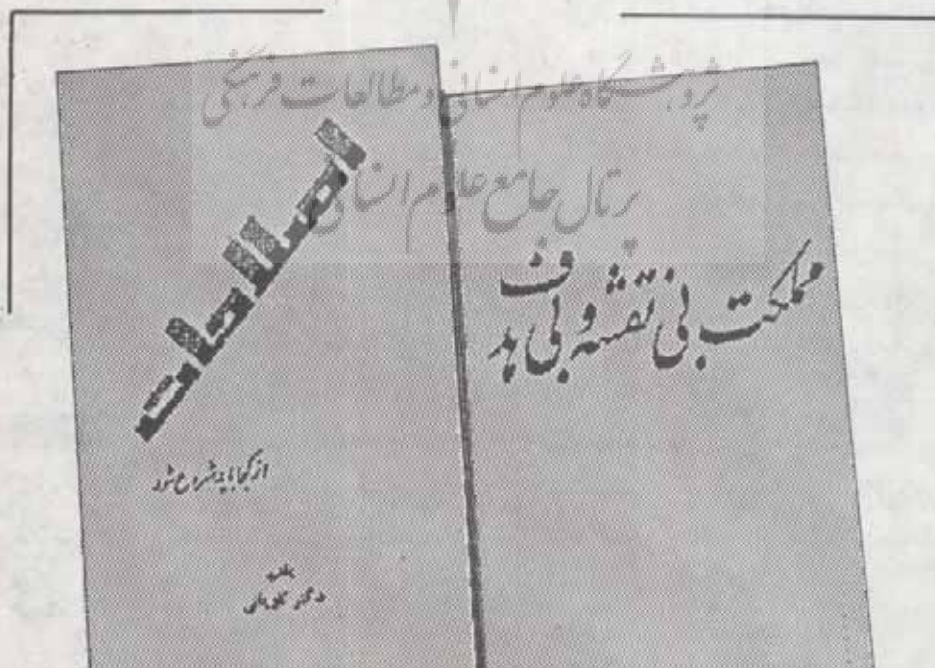 پژوهشگاه علوم انسانی و مطالعات فرهنگی
پرتال جامع علوم انسانی
مملکت بی نقشه و بی هدف
از کجا باید شروع شود
دکتر